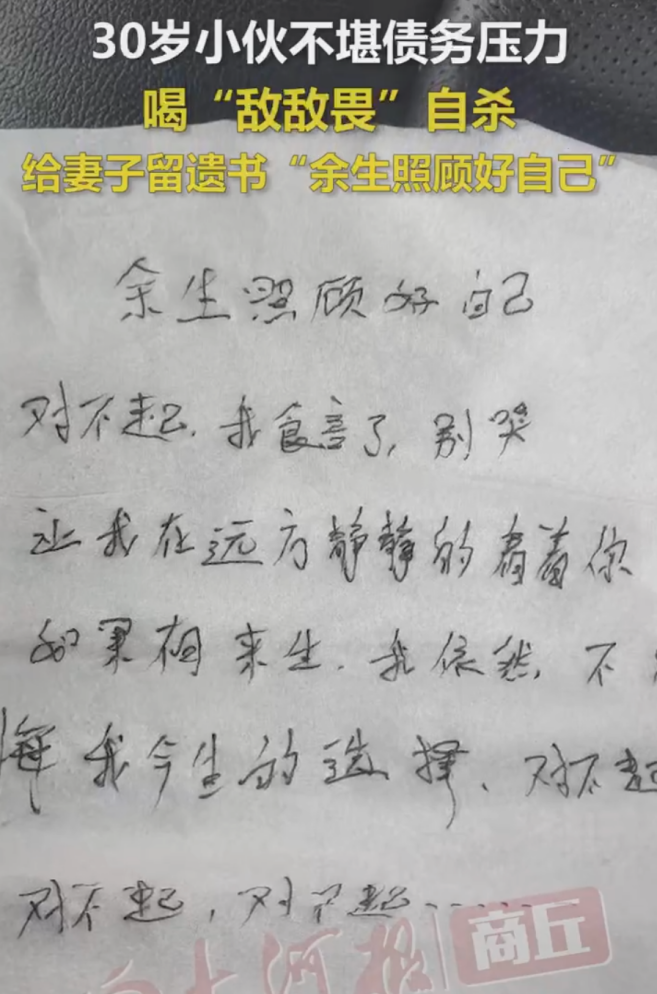 30岁小伙不堪债务压力
喝“敌敌畏”自杀
给妻子留遗书“余生照顾好自己”
余生照顾好自己
对不起，我食言了，别哭
让我在远方静静的看着你
如果有来生．我依然，不
悔我今生的选择、对不起
对不起，对不起……
大河报
商丘